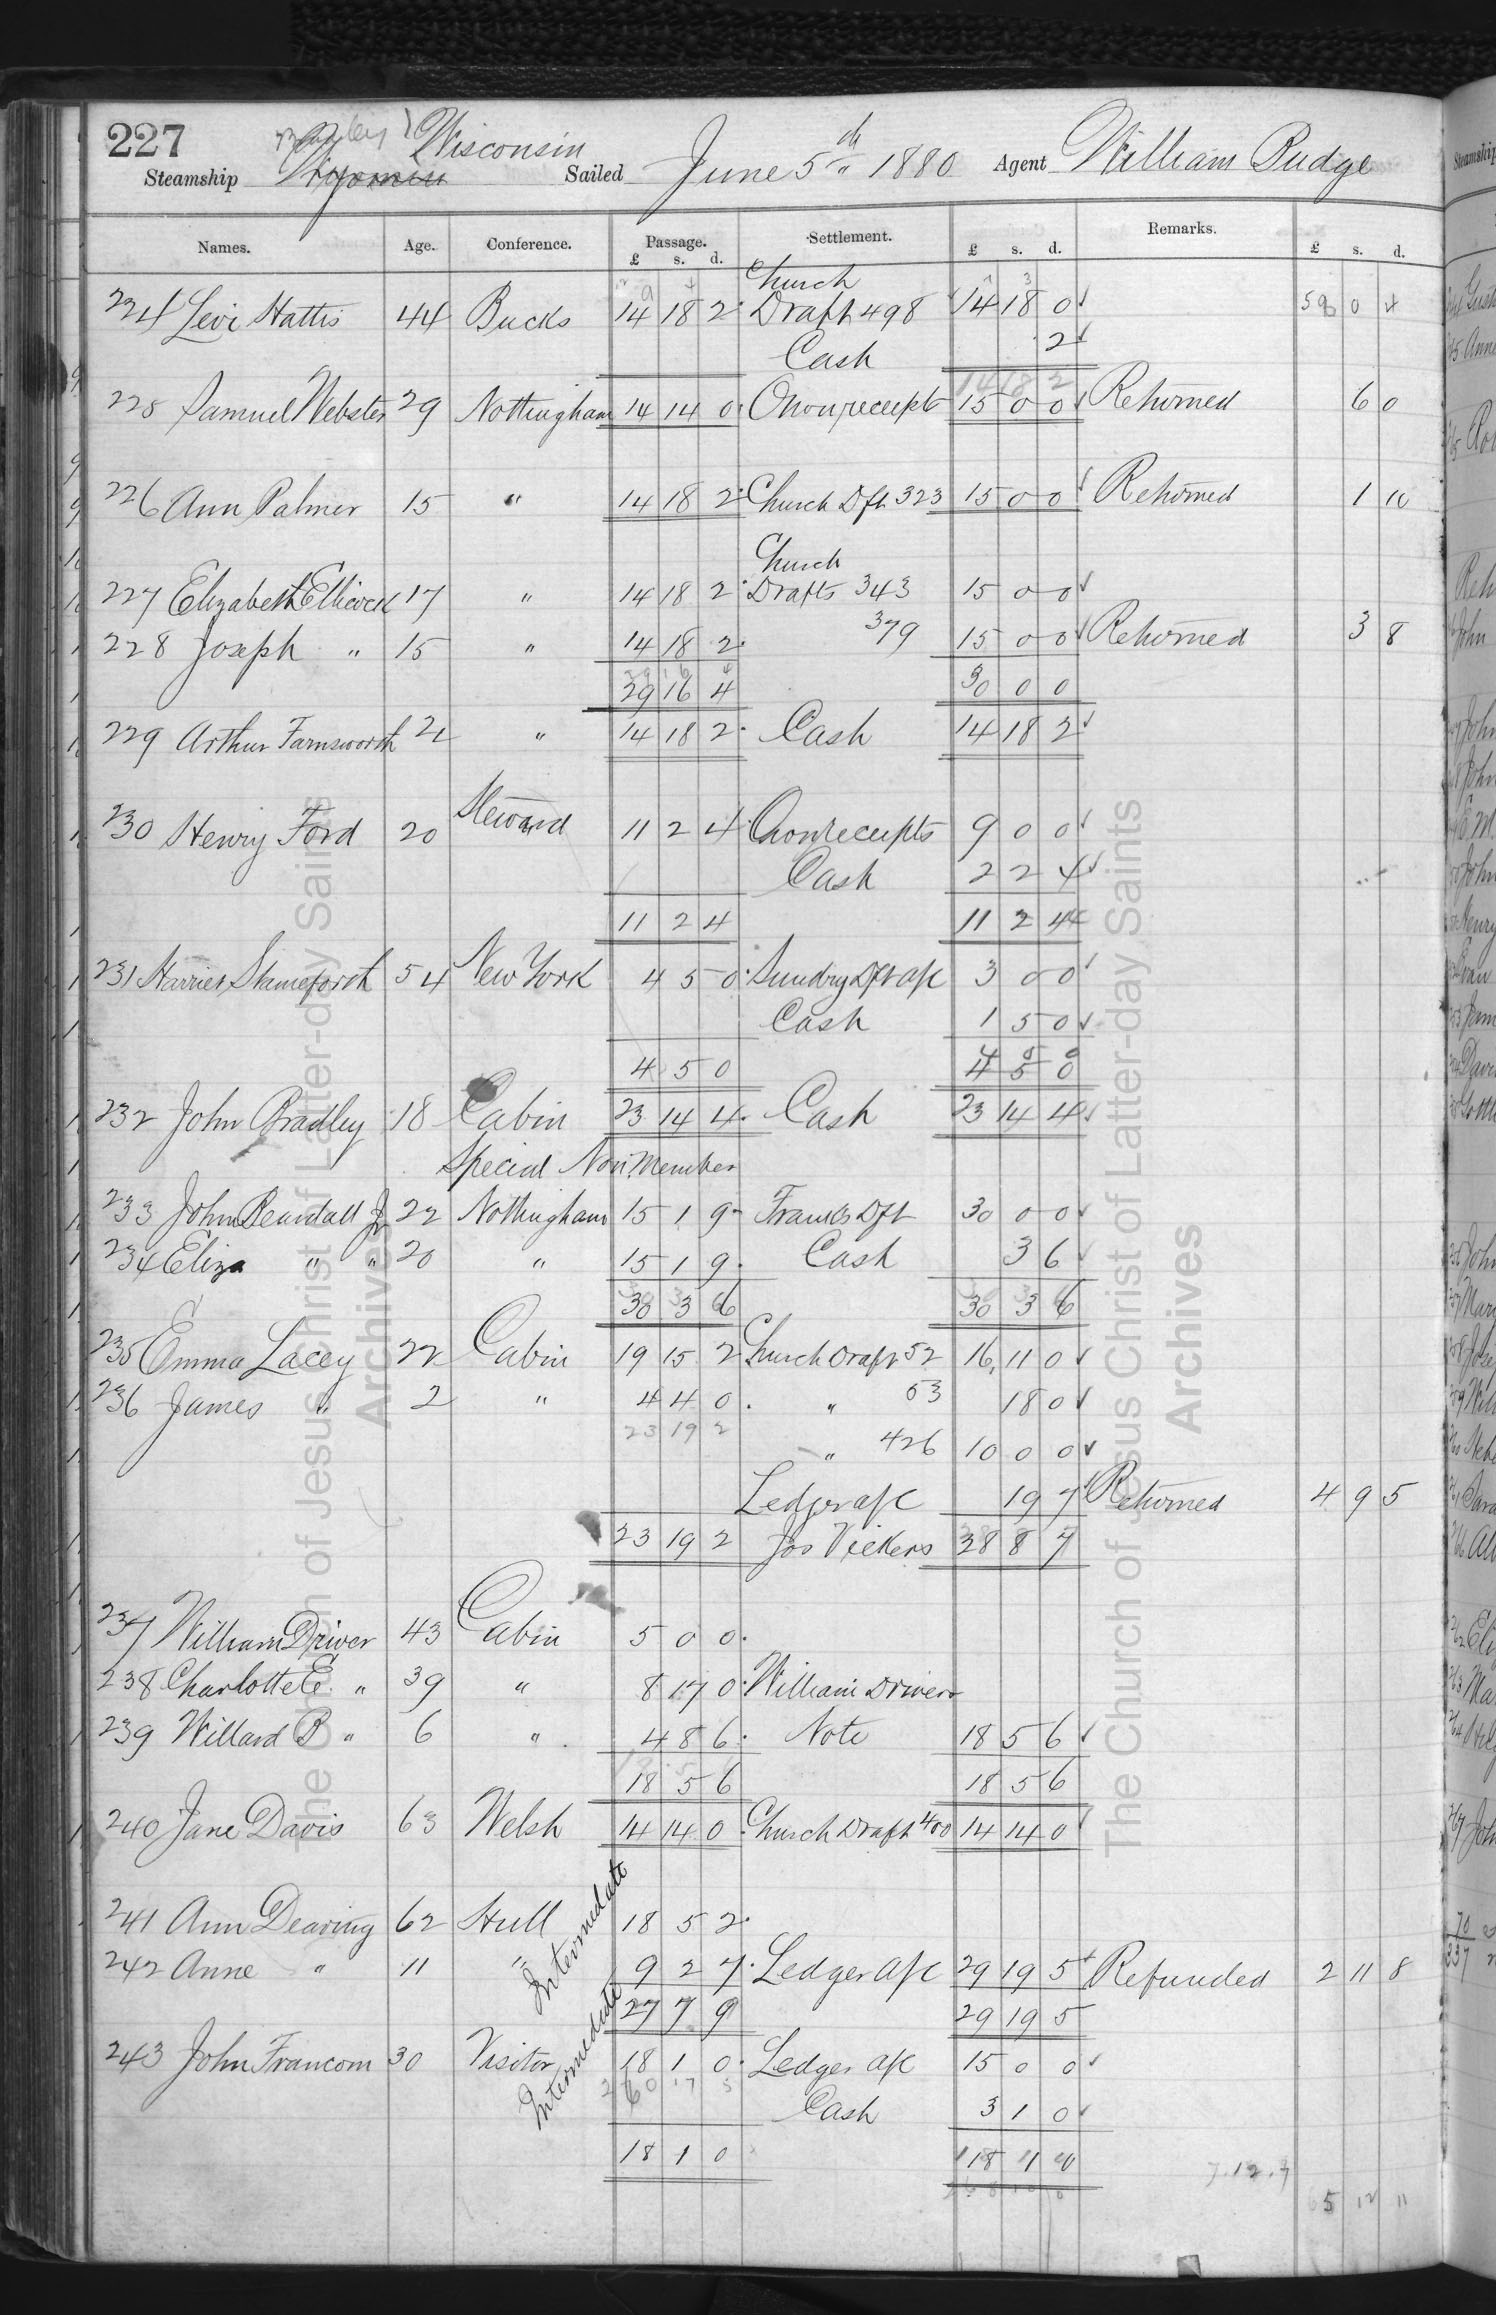 227
Steamship Wyoming Wisconsin Sailed June 5th 1880 Agent William Budge
Names. Age. Conference. Passage. £ s. d. Settlement. £ s. d. Remarks. £ s. d.
Church
224 Levi Hattis 44 Bucks 14 18 2 Draft 498 14 18 0 58 0 4
Cash 2
14 18 2
225 Samuel Webster 29 Nottingham 14 14 0 15 0 0 Returned 6 0
226 Ann Palmer 15 " 14 18 2 Church Dft 323 15 0 0 Returned 1 10
Church
227 Elizabeth Ellicock 17 " 14 18 2 Drafts 343 15 0 0
228 Joseph " 15 " 14 18 2 379 15 0 0 Returned 3 8
29 16 4 30 0 0
229 Arthur Farnsworth 21 " 14 18 2 Cash 14 18 2
230 Henry Ford 20 Steward 11 2 4 9 0 0
Cash 2 2 4
11 2 4 11 2 4
231 Harriet Stameforth 54 New York 4 5 0 Sundry Dft a/c 3 0 0
Cash 1 5 0
4 5 0 4 5 0
232 John Bradley 18 Cabin 23 14 4 Cash 23 14 4
Special Non Member
233 John Beardall Jr 22 Nottingham 15 1 9 Francks Dft 30 0 0
234 Eliza " " 20 " 15 1 9 Cash 3 6
30 3 6 30 3 6
235 Emma Lacey 22 Cabin 19 15 2 Church Draft 52 16 11 0
236 James " 2 " 4 4 0 " 53 18 0
23 19 2
" 426 10 0 0
Ledger a/c 19 7 Returned 4 9 5
23 19 2 Jos Vickers 28 8 7
237 William Driver 43 Cabin 5 0 0
238 Charlotte E. " 39 " 8 17 0 William Drivers
239 Willard B " 6 " 4 8 6 Note 18 5 6
18 5 6 18 5 6
240 Jane Davis 63 Welsh 14 14 0 Church Draft 400 14 14 0
241 Ann Dearing 62 Hull Intermediate 18 5 2
242 Anne " 11 " 9 2 7 Ledger a/c 29 19 5 Refunded 2 11 8
27 7 9 29 19 5
243 John Francom 30 Visitor Intermediate 18 1 0 Ledger a/c 15 0 0
Cash 3 1 0
18 1 0 18 1 0
7.12.7
65 12 11
The Church of Jesus Christ of Latter-day Saints
Archives
The Church of Jesus Christ of Latter-day Saints
Archives